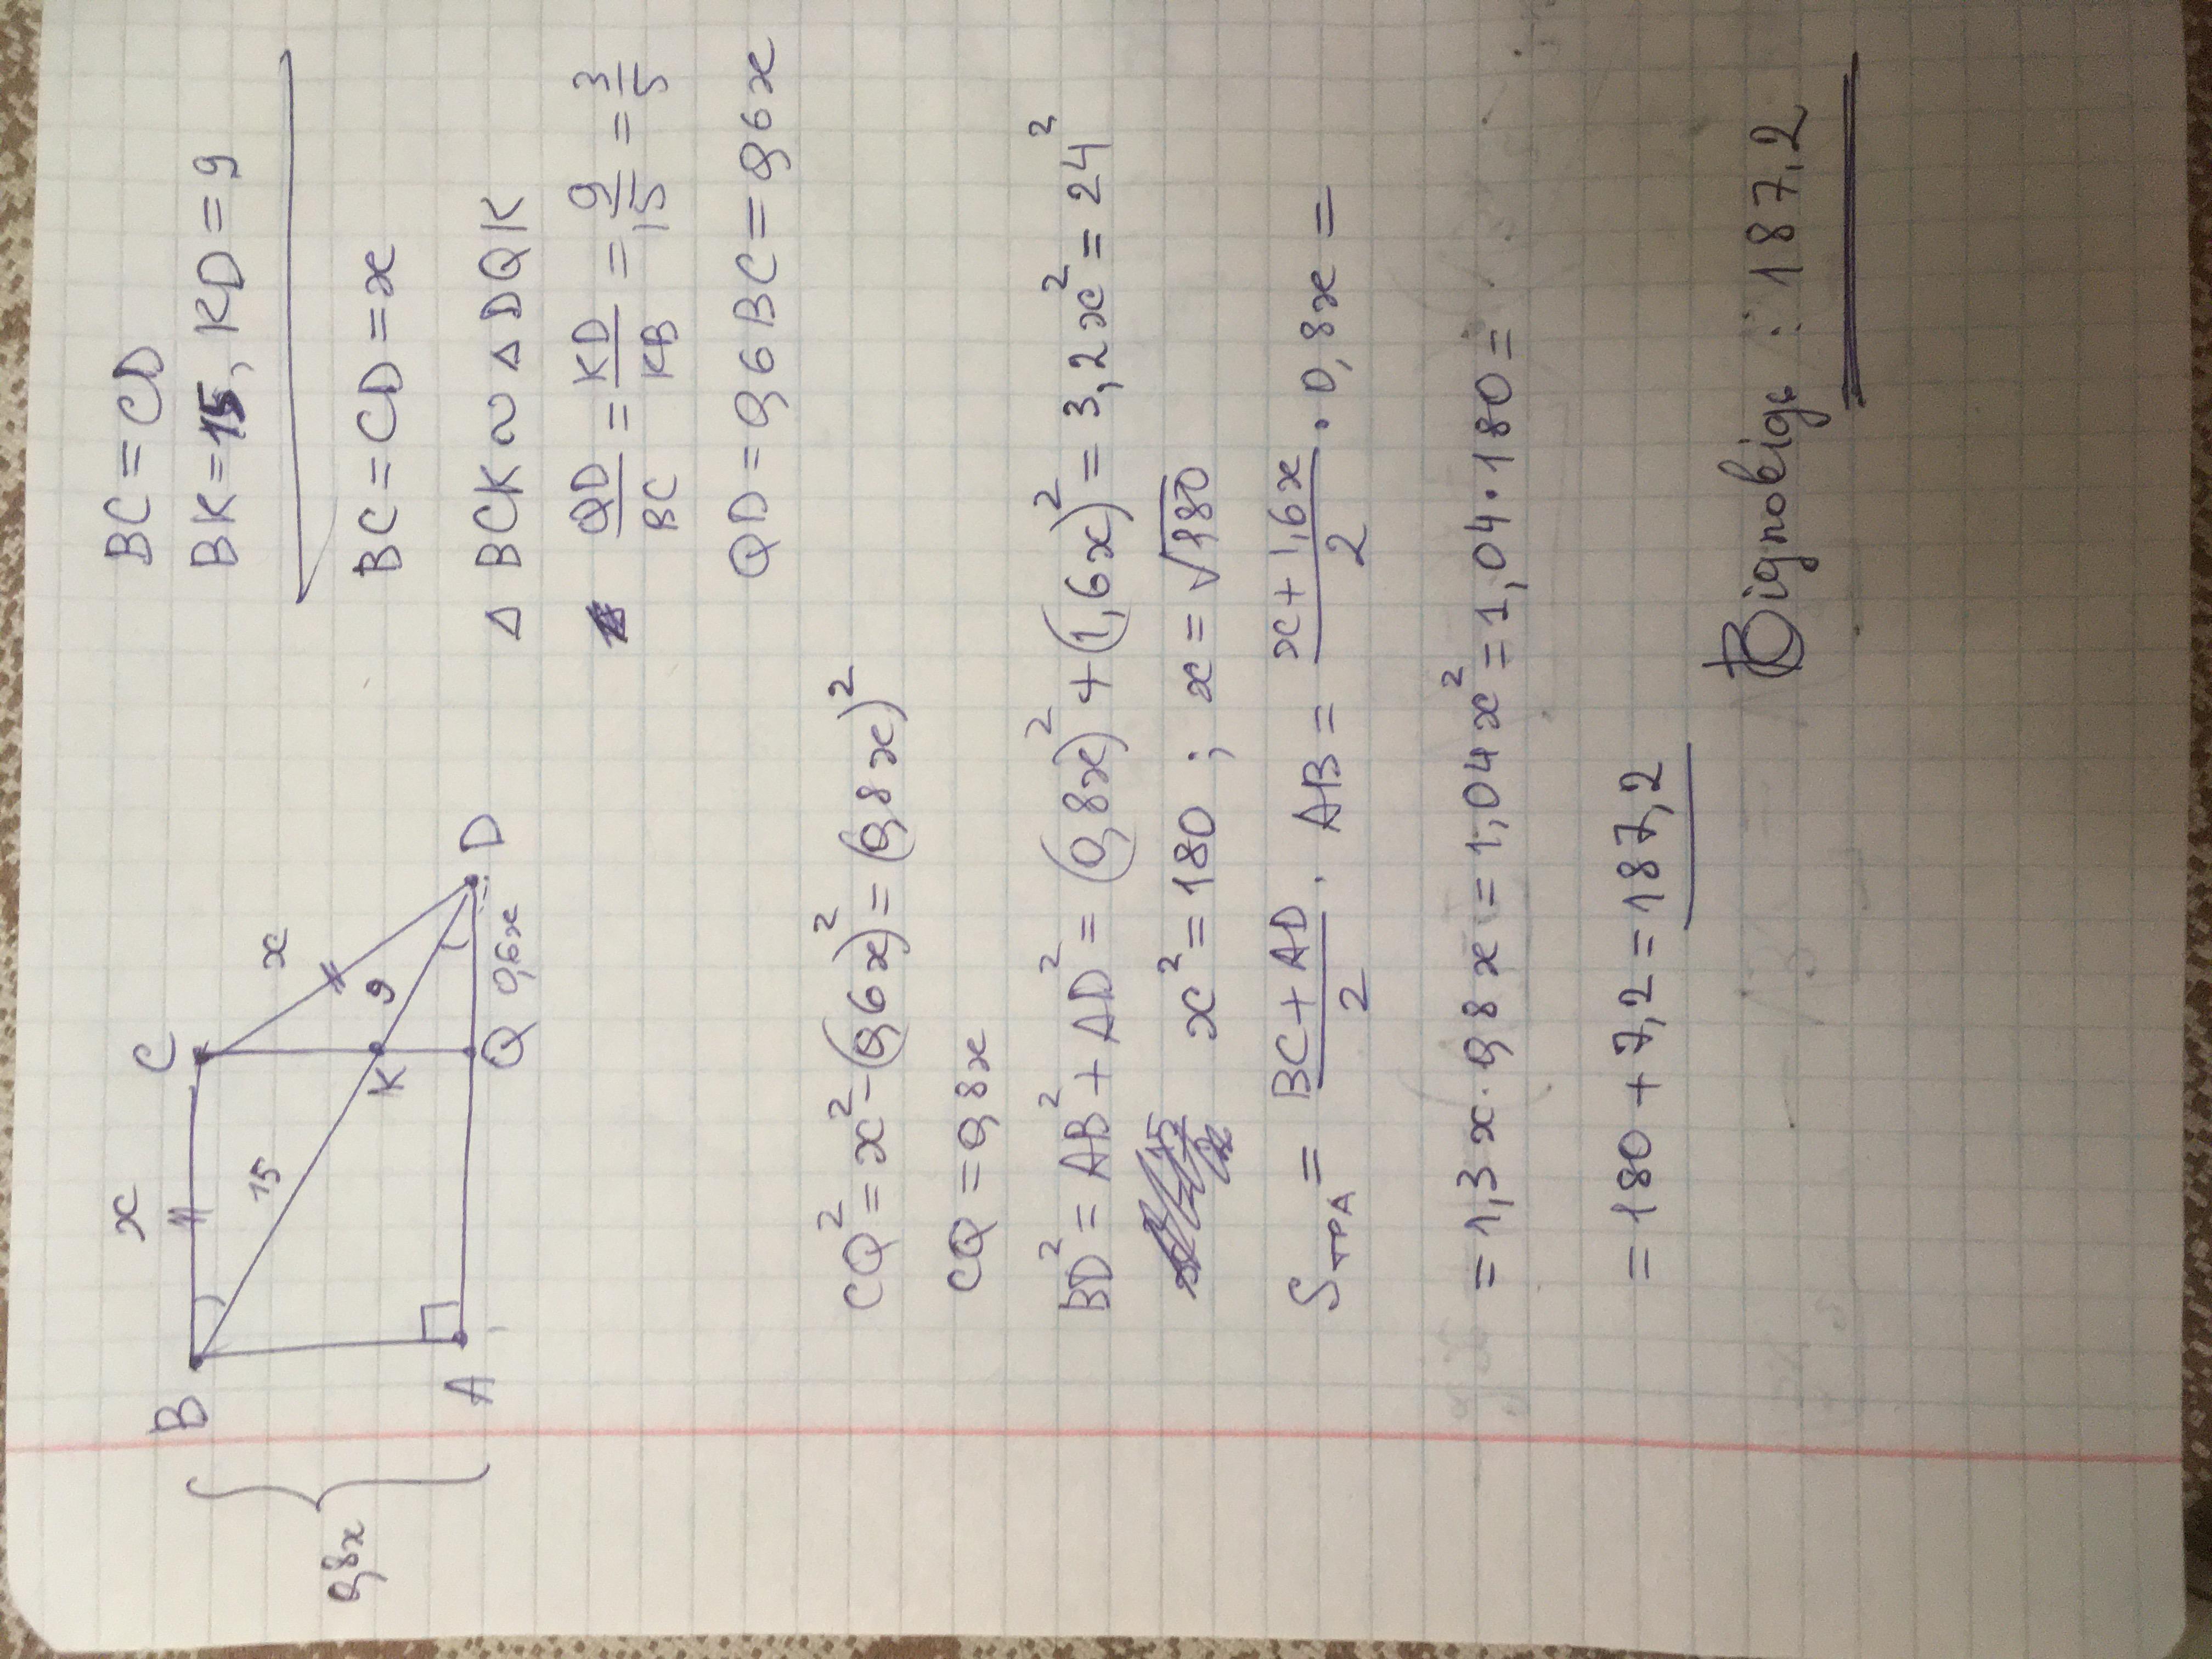 B
x
C
x
15
K
9
D
A
Q
0,6x
0,8x
BC = CD
BK = 15, KD = 9
BC = CD = x
△ BCK ∾ △ DQK
QD/BC = KD/KB = 9/15 = 3/5
QD = 0,6BC = 0,6x
CQ² = x² − (0,6x)² = (0,8x)²
CQ = 0,8x
BD² = AB² + AD² = (0,8x)² + (1,6x)² = 3,2x² = 24²
x² = 180 ; x = √180
Sтра = (BC + AD)/2 · AB = (x + 1,6x)/2 · 0,8x =
= 1,3x · 0,8x = 1,04x² = 1,04 · 180 =
= 180 + 7,2 = 187,2
Відповідь : 187,2